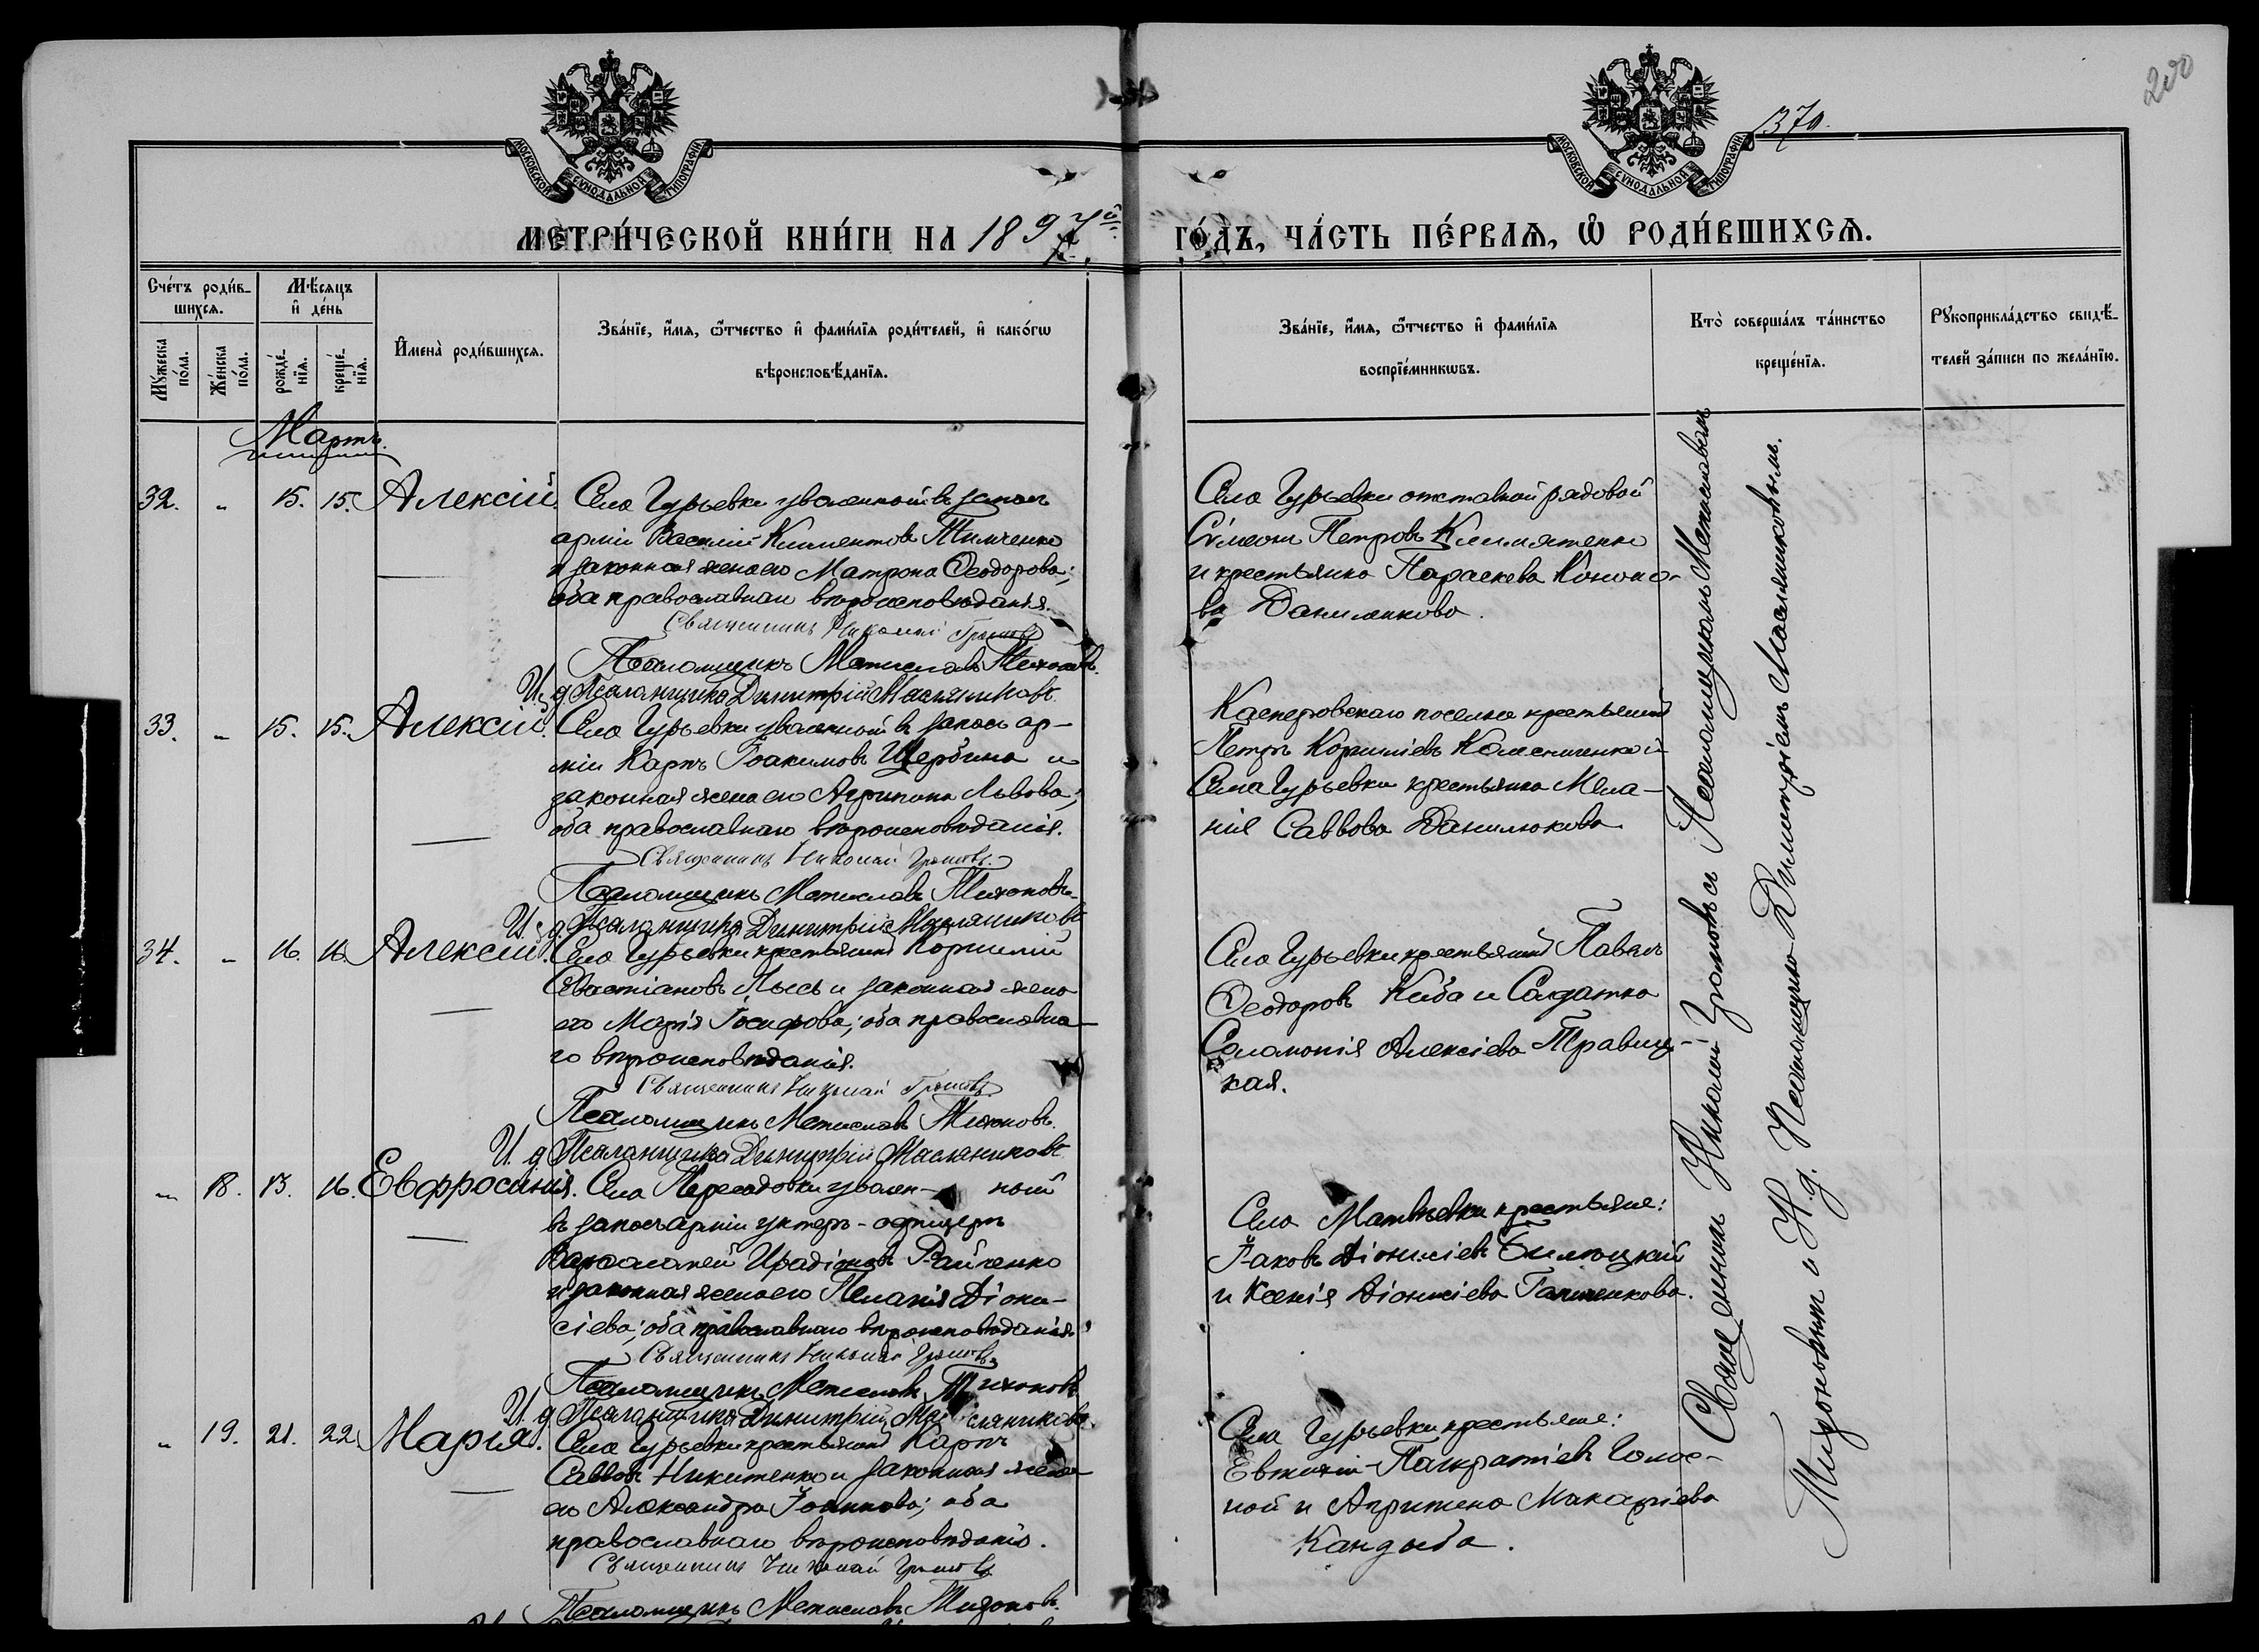 200
370.
МОСКОВСКОЙ СѴНОДАЛЬНОЙ ТИПОГРАФІИ
МОСКОВСКОЙ СѴНОДАЛЬНОЙ ТИПОГРАФІИ
МЕТРИ́ЧЕСКОЙ КНИ́ГИ НА 1897й
ГО́ДЪ, ЧА́СТЬ ПЕ́РВАѦ, Ѽ РОДИ́ВШИХСѦ.
Сче́тъ роди́в-
шихсѧ.
Мꙋ́жеска по́ла.
Же́нска по́ла.
Мѣ́сяцъ
и҆ де́нь
рожде́-нїѧ.
креще́-нїѧ.
И҆мена̀ роди́вшихсѧ.
Зва́нїе, и҆́мѧ, ѻ҆́тчество и҆ фами́лїѧ роди́телей, и҆ како́гѡ
вѣроисповѣ́данїѧ.
Зва́нїе, и҆́мѧ, ѻ҆́тчество и҆ фами́лїѧ
воспрїе́мникѡвъ.
Кто̀ соверша́лъ та́инство
креще́нїѧ.
Рꙋкоприкла́дство свидѣ́-
телей за́писи по жела́нїю.
Мартъ.
32. „ 15. 15. Алексій. Села Гурьевки уволенный в запасъ
арміи Василій Климентовъ Тимченко
и законная жена его Матрона Ѳеодорова;
оба православнаго вѣроисповѣданія.
Священникъ Николай Громовъ
Псаломщикъ Мстиславъ Тихоновъ.
И. д. Псаломщика Димитрій Масляниковъ
Села Гурьевки отставной рядовой
Сѵмеонъ Петровъ
и крестьянка Параскева Кононо-
ва Данилюкова.
33. „ 15. 15. Алексій. Села Гурьевки уволенный в запасъ ар-
міи Карпъ Іоакимовъ Щербина и
законная жена его Агрипина Львова;
оба православнаго вѣроисповѣданія.
Священникъ Николай Громовъ.
Псаломщикъ Мстиславъ Тихоновъ.
И. д. Псаломщика Димитрій Масляниковъ
Касперовскаго поселка крестьянинъ
Петръ Корниліевъ и
Села Гурьевки крестьянка Мела-
нія Саввова Данилюкова
34. „ 16. 16. Алексій. Села Гурьевки крестьянинъ Корнилій
Севастіановъ Лысь и законная жена
его Марія Іосифова; оба православна-
го вѣроисповѣданія.
Священникъ Николай Громовъ
Псаломщикъ Мстиславъ Тихоновъ.
И. д. Псаломщика Димитрій Масляниковъ
Села Гурьевки крестьянинъ Павелъ
Ѳеодоровъ Киба и Солдатка
Соломонія Алексіева Травиц-
кая.
„ 18. 15. 16. Евфросинія. Села Пересадовки уволен- ный
въ запасъ арміи унтеръ-офицеръ
Варѳоломей Иродіоновъ Райченко
и законная жена его Пелагія Діони-
сіева; оба православнаго вѣроисповѣданія.
Священникъ Николай Громовъ
Псаломщикъ Мстиславъ Тихоновъ
И. д. Псаломщика Димитрій Масляниковъ
Села Матвѣевки крестьяне:
Іаковъ Діонисіевъ
и Ксенія Діонисіева
„ 19. 21. 22. Марія. Села Гурьевки крестьянинъ Карпъ
Саввовъ Никитенко и законная жена
его Александра Іоаннова; оба
православнаго вѣроисповѣданія.
Священникъ Николай Громовъ
Псаломщикъ Мстиславъ Тихоновъ.
Села Гурьевки крестьяне:
Евтихій Панкратіевъ Голос-
ной и Агрипина Макаріева
Кандыба.
Священникъ Николай Громовъ съ Псаломщикомъ Мстиславомъ
Тихоновымъ и И. д. Псаломщика Димитріемъ Масляниковымъ.